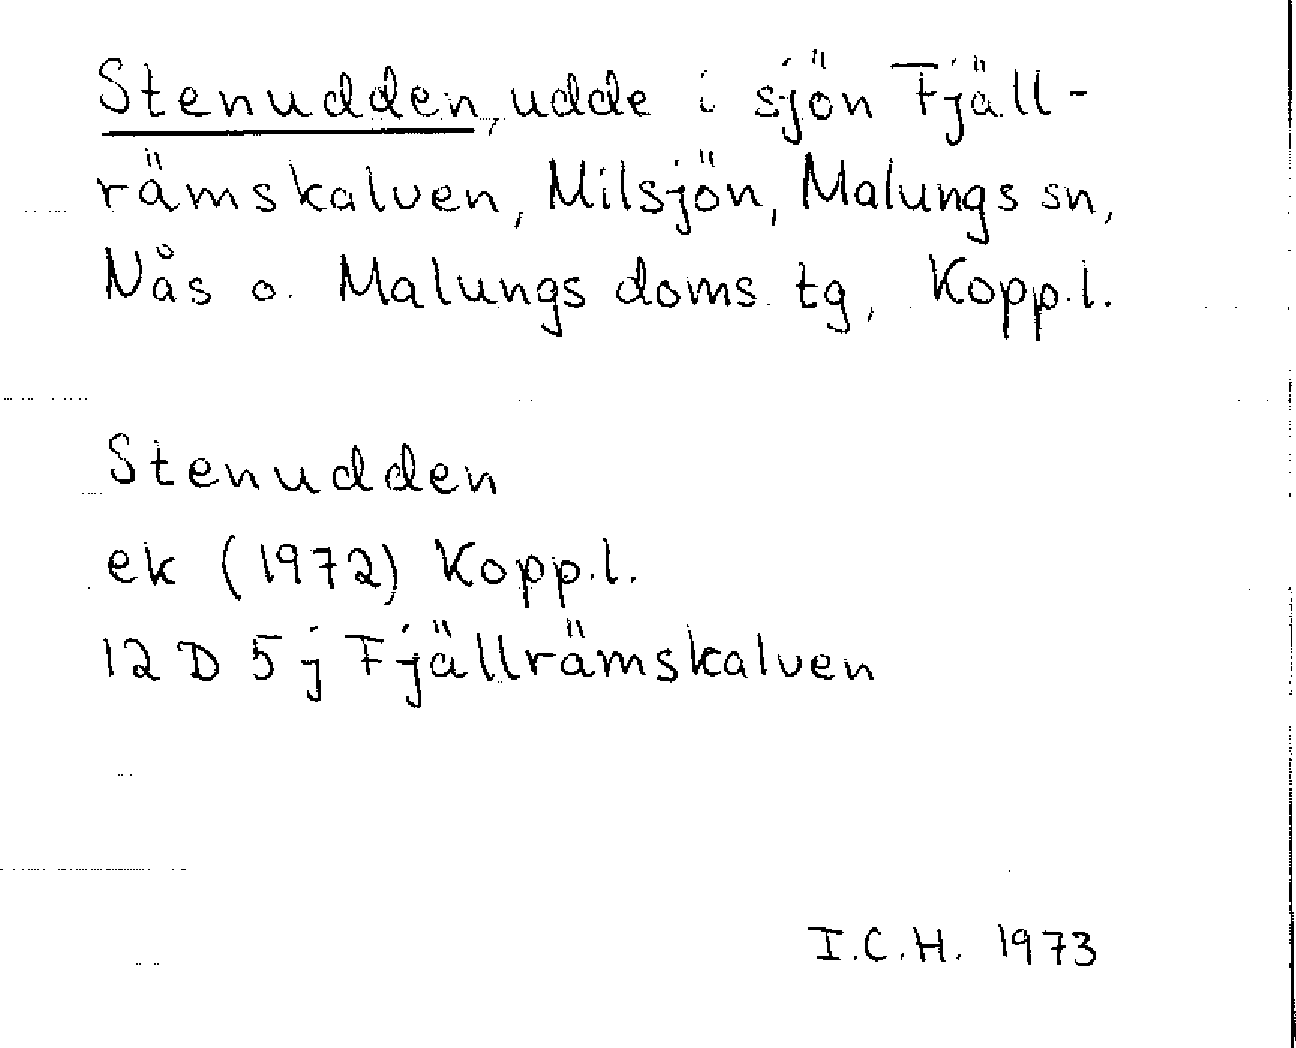 Stenudden, udde i sjön Fjäll-
rämskalven, Milsjön, Malungs sn,
Nås o. Malungs doms. tg, Kopp.l.
Stenudden
ek (1972) Kopp.l.
12 D 5 j Fjällrämskalven
I.C.H. 1973